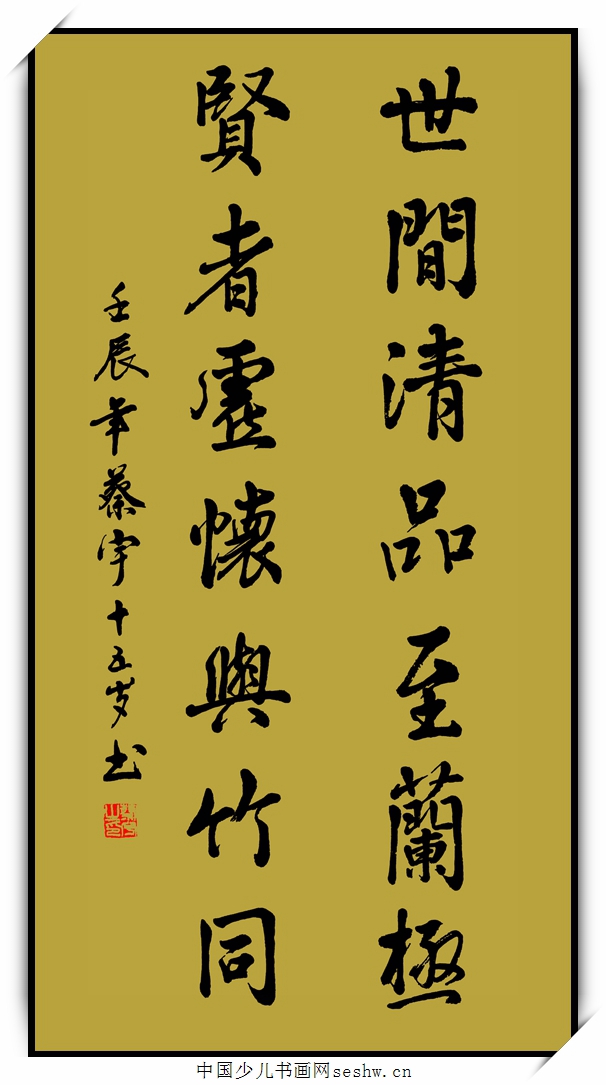 世間清品至蘭極
賢者虛懷與竹同
壬辰年蔡宇十五岁书
中国少儿书画网seshw.cn